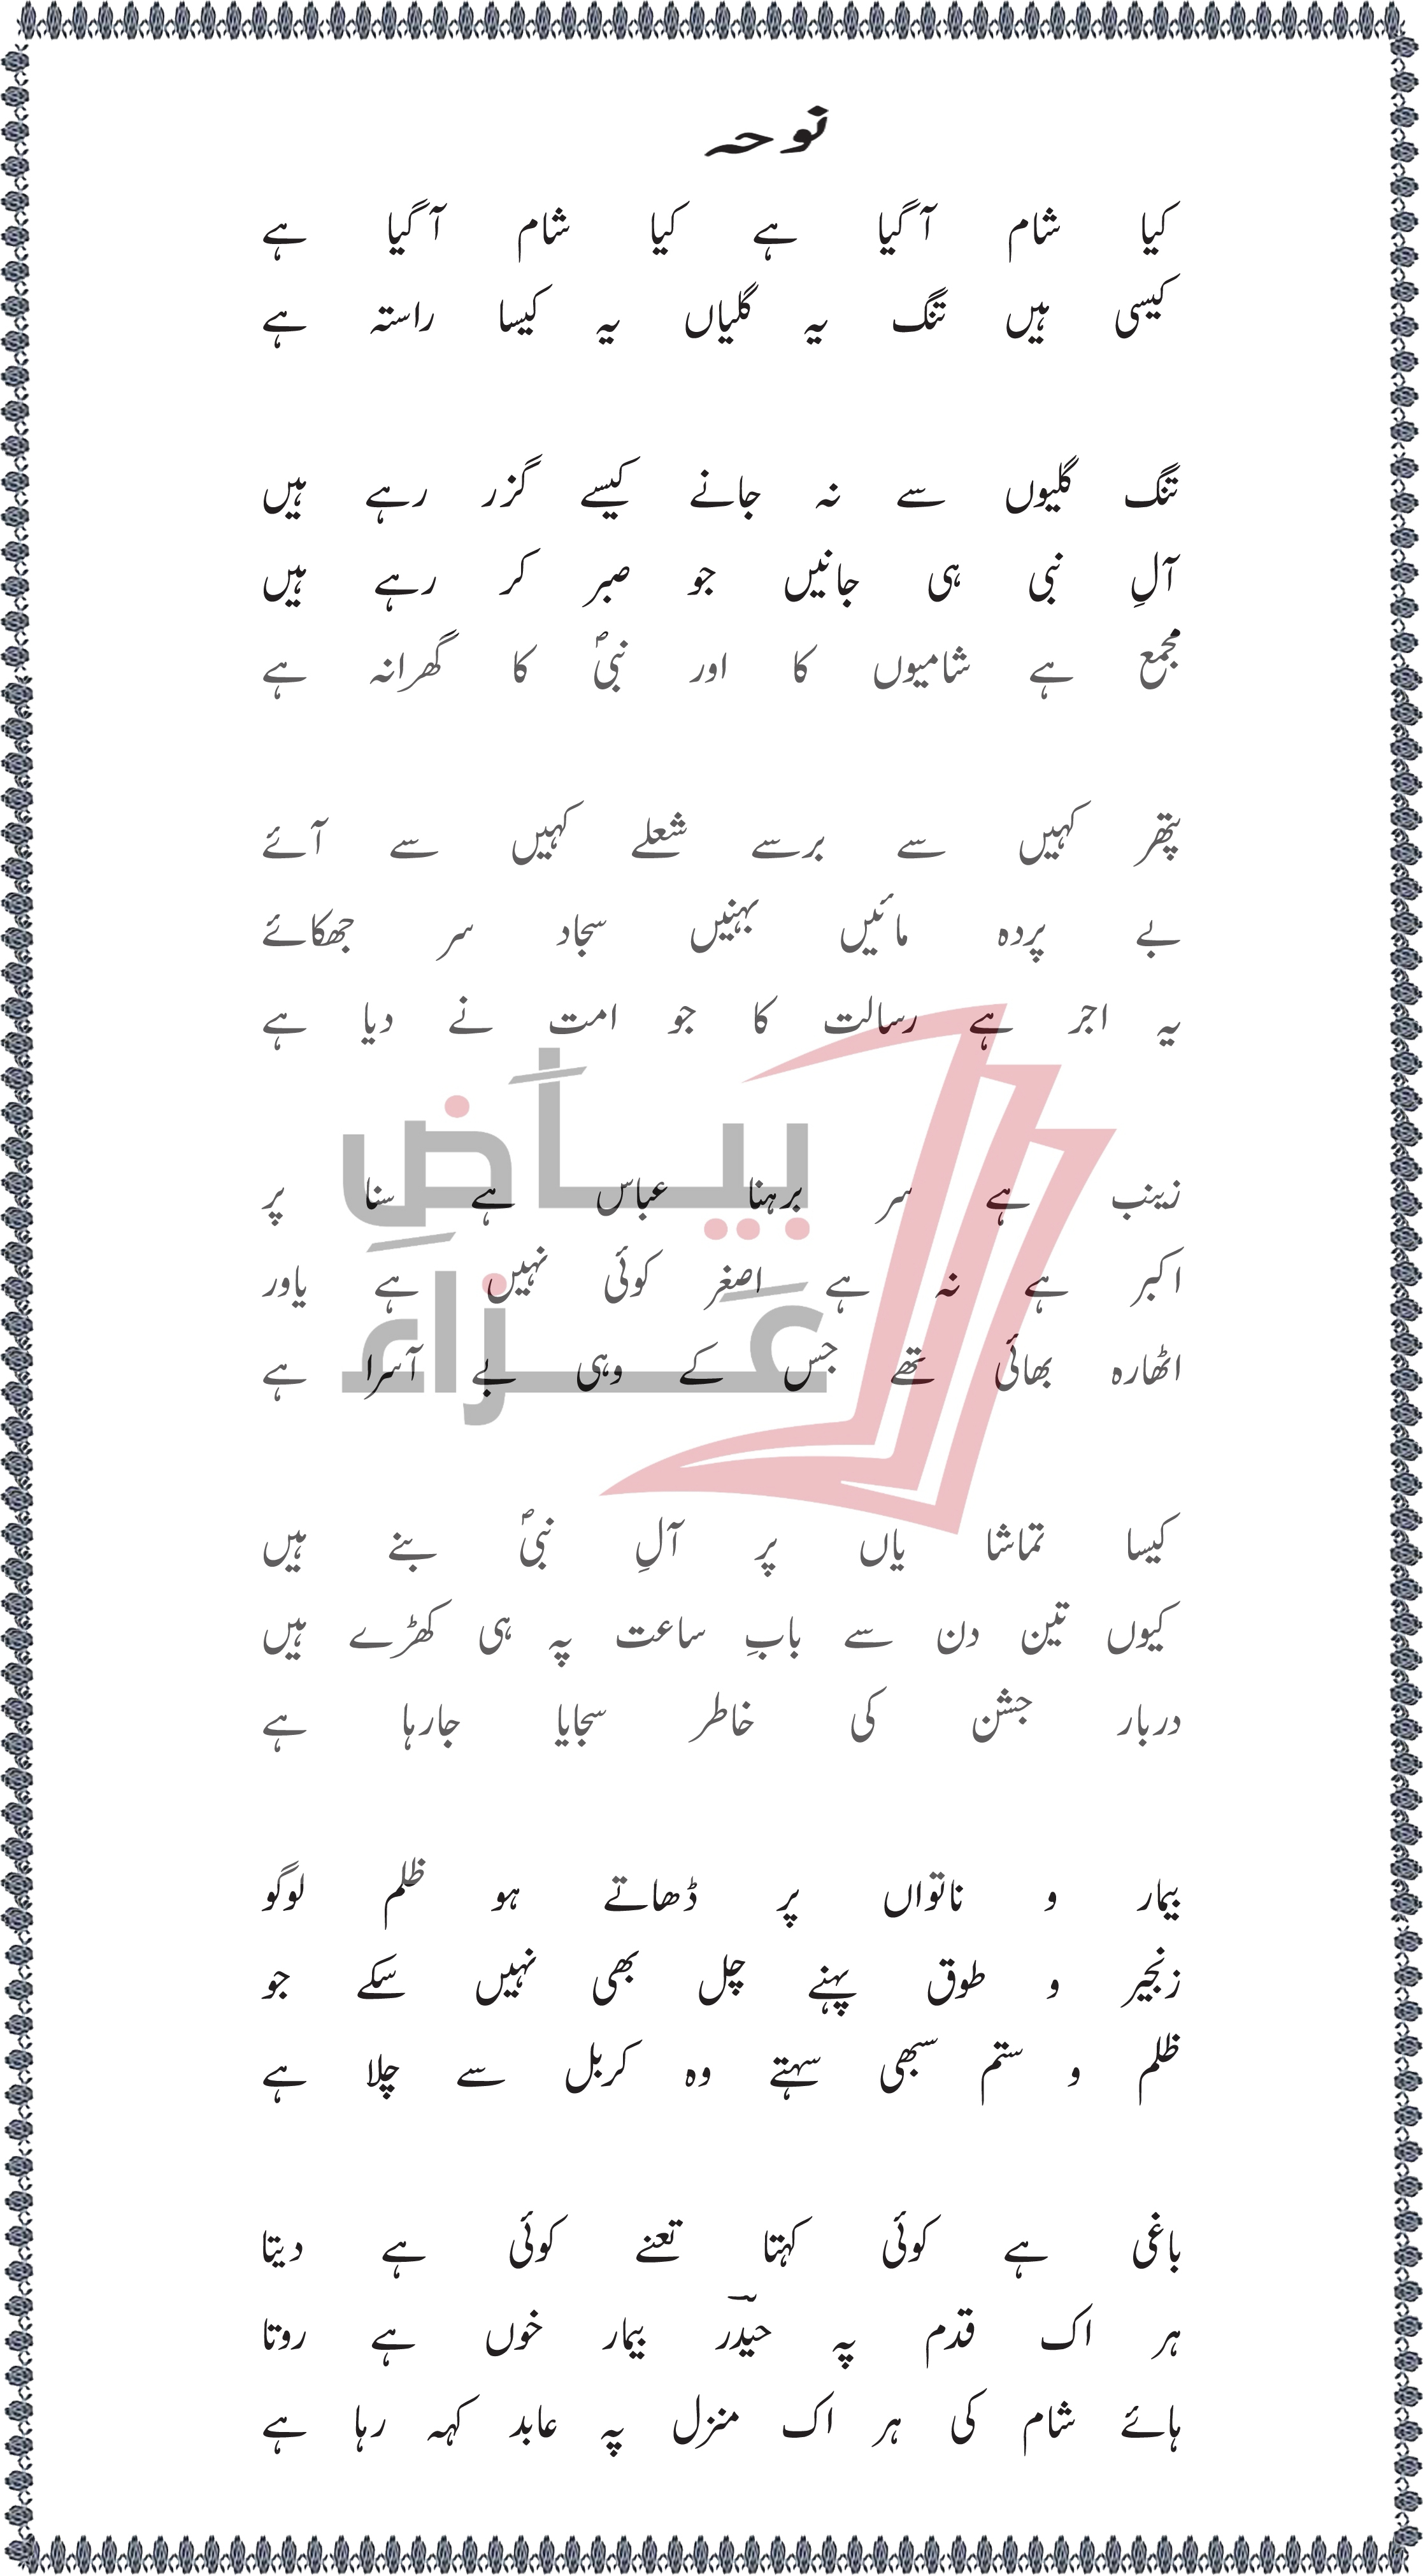 نوحہ
کیا شام آگیا ہے کیا شام آگیا ہے
کیسی ہیں تنگ یہ گلیاں یہ کیسا راستہ ہے
تنگ گلیوں سے نہ جانے کیسے گزر رہے ہیں
آلِ نبی ہی جانیں جو صبر کر رہے ہیں
مجمع ہے شامیوں کا اور نبیؐ کا گھرانہ ہے
پتھر کہیں سے برسے شعلے کہیں سے آئے
بے پردہ مائیں بہنیں سجاد سر جھکائے
یہ اجر ہے رسالت کا جو امت نے دیا ہے
زینب ہے سر برہنا عباس ہے سنا پر
اکبر ہے نہ ہے اصغر کوئی نہیں ہے یاور
اٹھارہ بھائی تھے جس کے وہی بے آسرا ہے
بیاضِ عزاء
کیسا تماشا یاں پر آلِ نبیؐ بنے ہیں
کیوں تین دن سے بابِ ساعت پہ ہی کھڑے ہیں
دربار جشن کی خاطر سجایا جارہا ہے
بیمار و ناتواں پر ڈھاتے ہو ظلم لوگو
زنجیر و طوق پہنے چل بھی نہیں سکے جو
ظلم و ستم سبھی سہتے وہ کربل سے چلا ہے
باغی ہے کوئی کہتا تعنے کوئی ہے دیتا
ہر اک قدم پہ حیدرؔ بیمار خوں ہے روتا
ہائے شام کی ہر اک منزل پہ عابد کہہ رہا ہے